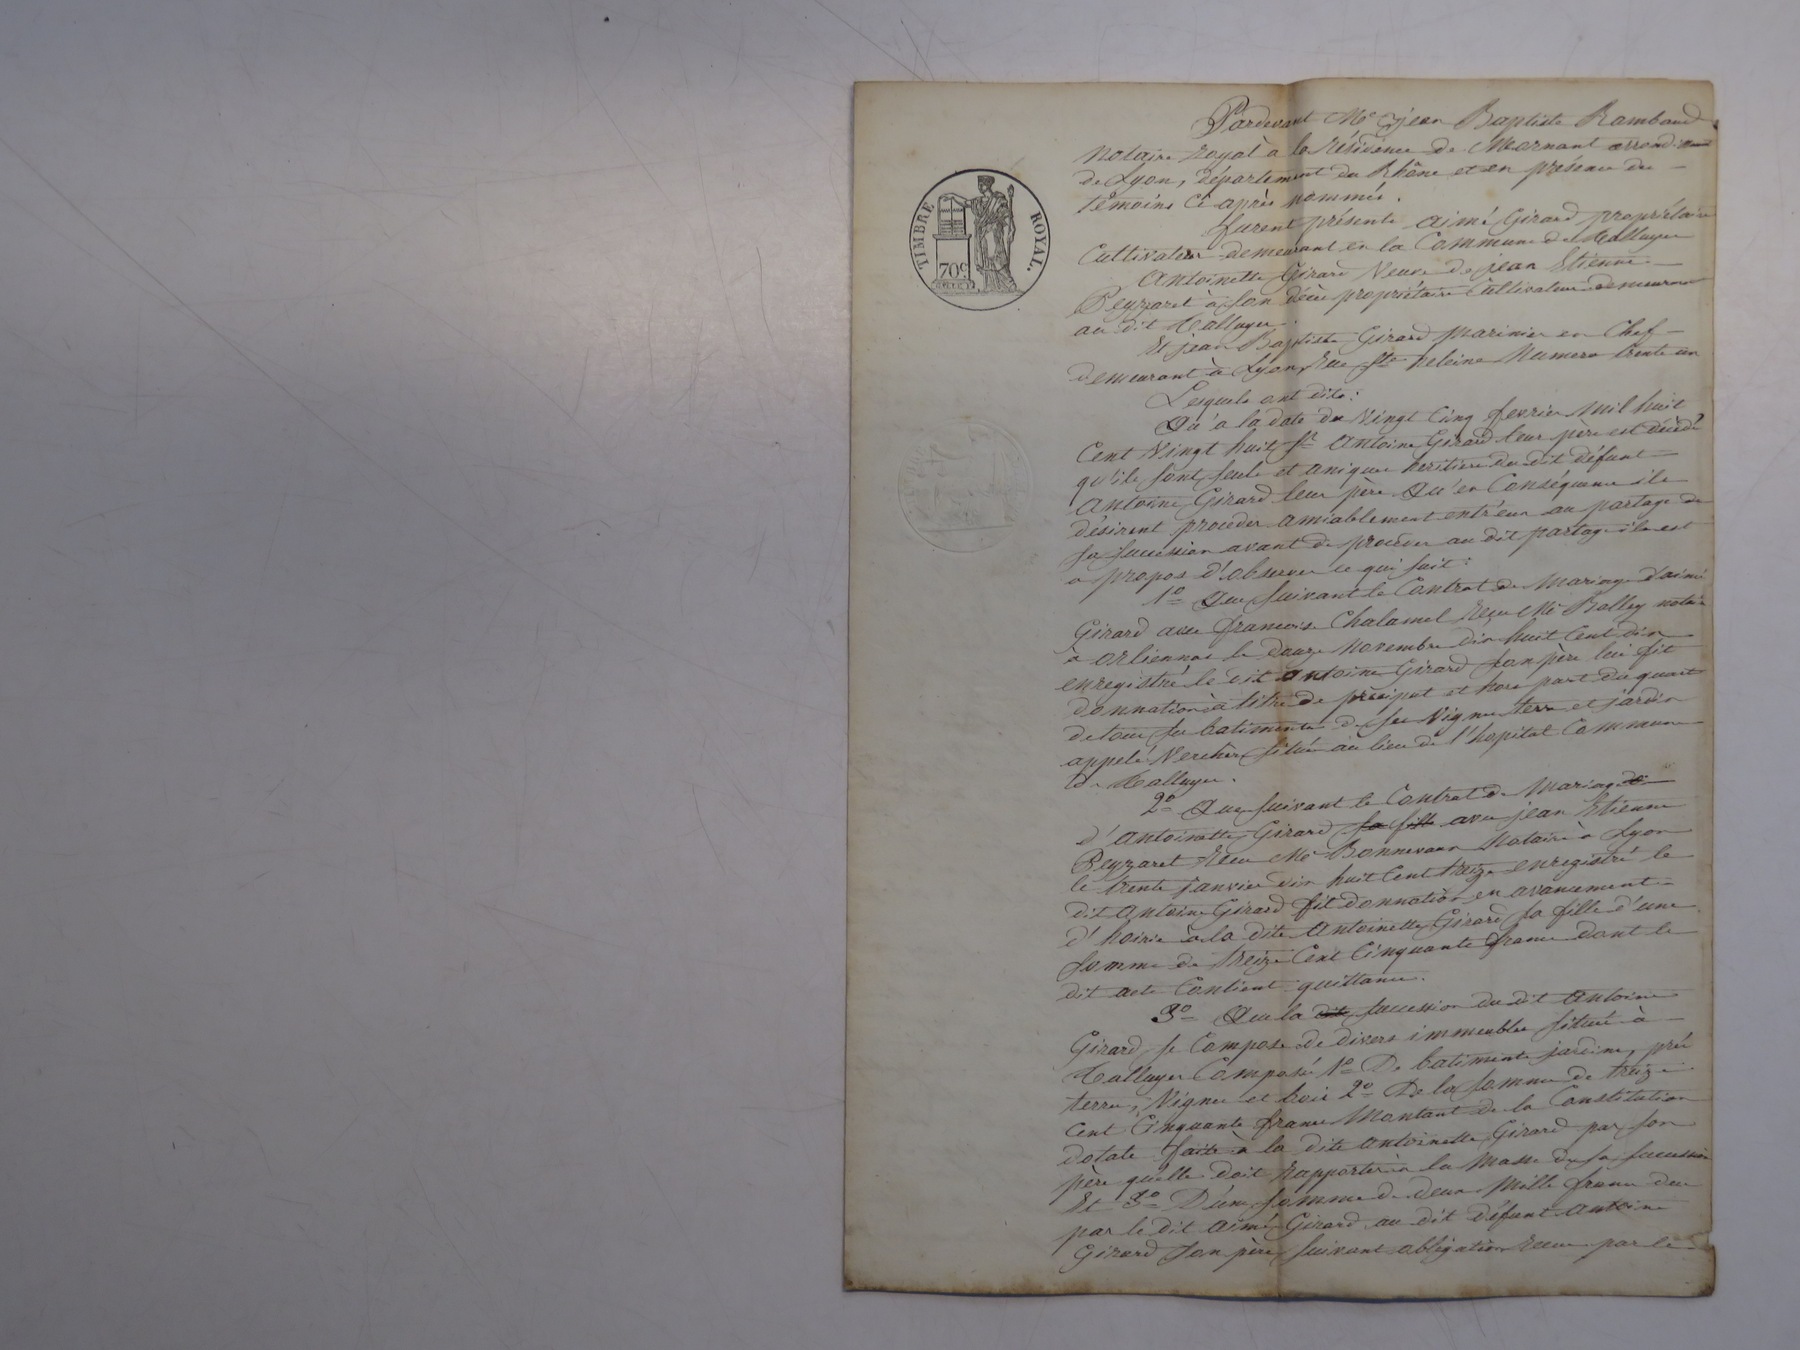 TIMBRE ROYAL.
70c
Pardevant Me jean Baptiste Rambaud
notaire royal à la résidence de Mornant arrondissement
de Lyon, département du Rhône et en présence des
témoins ci après nommés.
furent présents aimé Girard propriétaire
Cultivateur demeurant en la Commune de Talluyer
Antoinette Girard Veuve de jean Etienne
Peyzaret à son décès propriétaire Cultivateur demeurant
au dit Talluyer.
Et jean Baptiste Girard marinier en Chef
demeurant à Lyon, Rue Ste heleine Numero trente un
Lesquels ont dits:
Qu'à la date du Vingt Cinq fevrier mil huit
Cent Vingt huit Sr Antoine Girard leur père est décédé
qu'ils sont seuls et uniques heritiers du dit défunt
Antoine Girard leur père Qu'en Consequence ils
désirent procéder amiablement entr'eux au partage de
sa succession avant de procéder au dit partage il est
a propos d'observer ce qui suit:
1o Que suivant le Contrat de Mariage d'aimé
Girard avec francoise Chalamel Reçu Me Balley notaire
à orliennas le douze Novembre dix huit Cent dix
enregistré le dit Antoine Girard son père lui fit
donnation à titre de préciput et hors part du quart
de tous ses batiments de ses Vignes terre et jardin
appelé Verchère situés au lieu de l'hopital Commune
de Talluyer.
2o Que suivant le Contrat de Mariage
d'antoinette Girard sa fille avec jean Etienne
Peyzaret Recu Me Bonnevaux Notaire à Lyon
le trente janvier dix huit Cent treize enregistré le
dit Antoine Girard fit donnation en avancement
d'hoirie à la dite Antoinette Girard sa fille d'une
somme de treize Cent Cinquante francs dont le
dit acte Contient quittance.
3o Que la dite succession du dit Antoine
Girard se Compose de divers immeubles situés à
Talluyer Composés 1o De batiments jardins, prés
terres, Vignes et bois 2o De la somme de treize
Cent Cinquante francs Montant de la Constitution
dotale faite à la dite Antoinette Girard par son
père qu'elle doit Rapporter à la Masse de sa succession
Et 3o D'une somme de deux Mille francs due
par le dit aimé Girard au dit défunt Antoine
Girard son père suivant obligation Recue par le